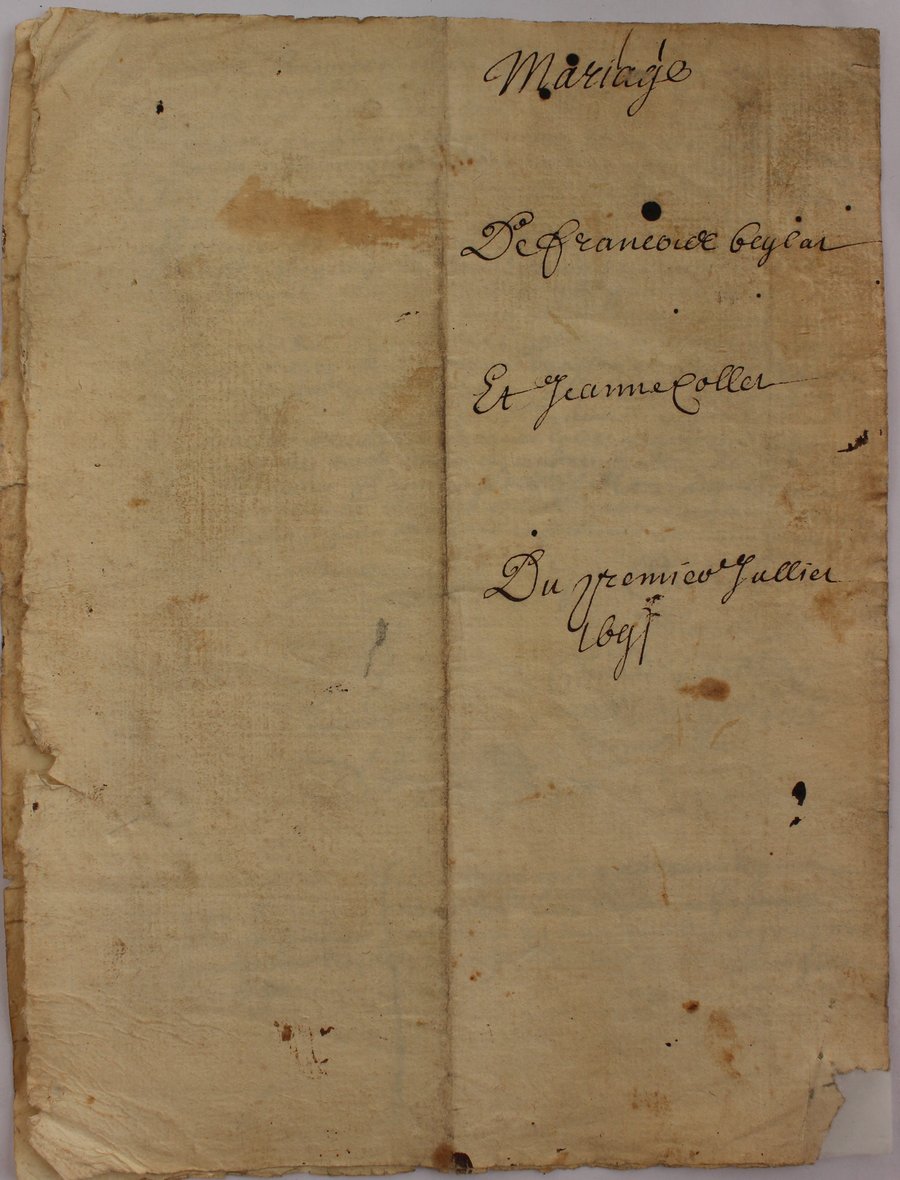 Mariage
De francois beylat
Et Jeanne Collet
Du premier Julliet
1695